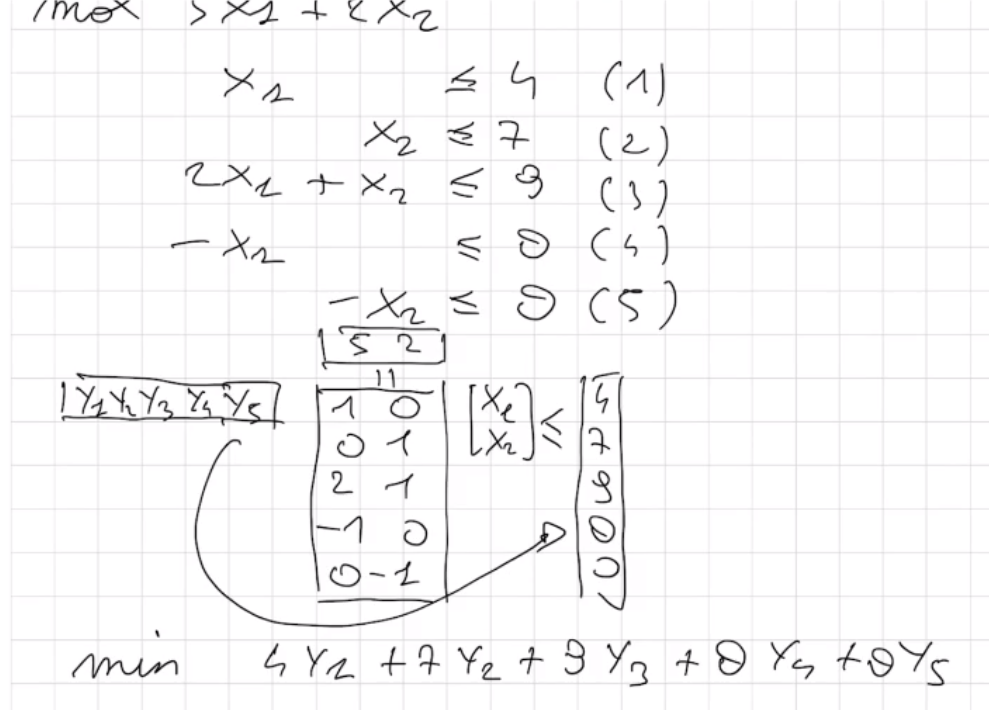 max 5x₁ + 2x₂
x₁ ≤ 4 (1)
x₂ ≤ 7 (2)
2x₁ + x₂ ≤ 9 (3)
-x₁ ≤ 0 (4)
-x₂ ≤ 0 (5)
5 2
=
y₁ y₂ y₃ y₄ y₅ 1 0 [x₁ 4
0 1 x₂] ≤ 7
2 1 9
-1 0 0
0 -1 0
min 4y₁ + 7y₂ + 9y₃ + 0y₄ + 0y₅